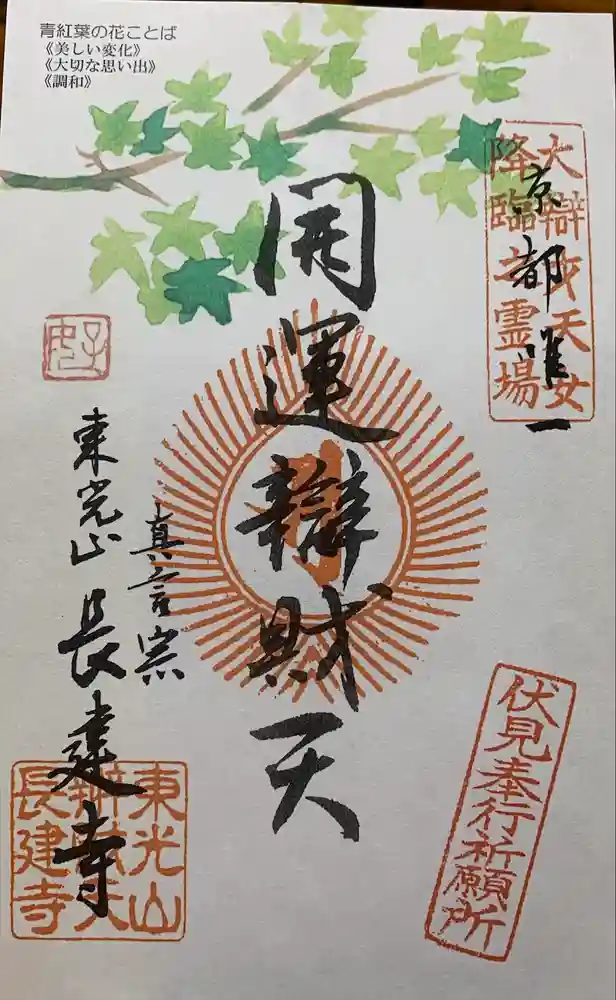 青紅葉の花ことば
《美しい変化》
《大切な思い出》
《調和》
大辯才天女
降臨之霊場
京都唯一
開運辯財天
真言宗
東光山 長建寺
東光山
辯財天
長建寺
伏見奉行祈願所